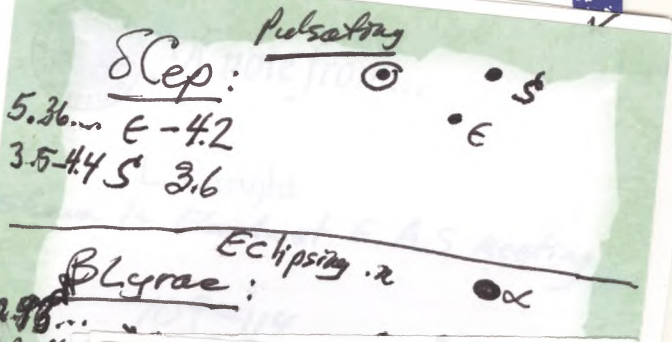 Pulsating
δ Cep:
S
5.36... ϵ - 4.2
ϵ
3.5-4.4 S 3.6
Eclipsing
β Lyrae:
α